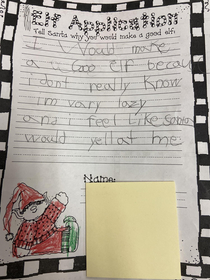 Elf Application
Tell Santa why you would make a good elf.
I would make
a good elf becau
i dont really know
i'm vary lazy
and i feel like santa
would yell at me
Name: